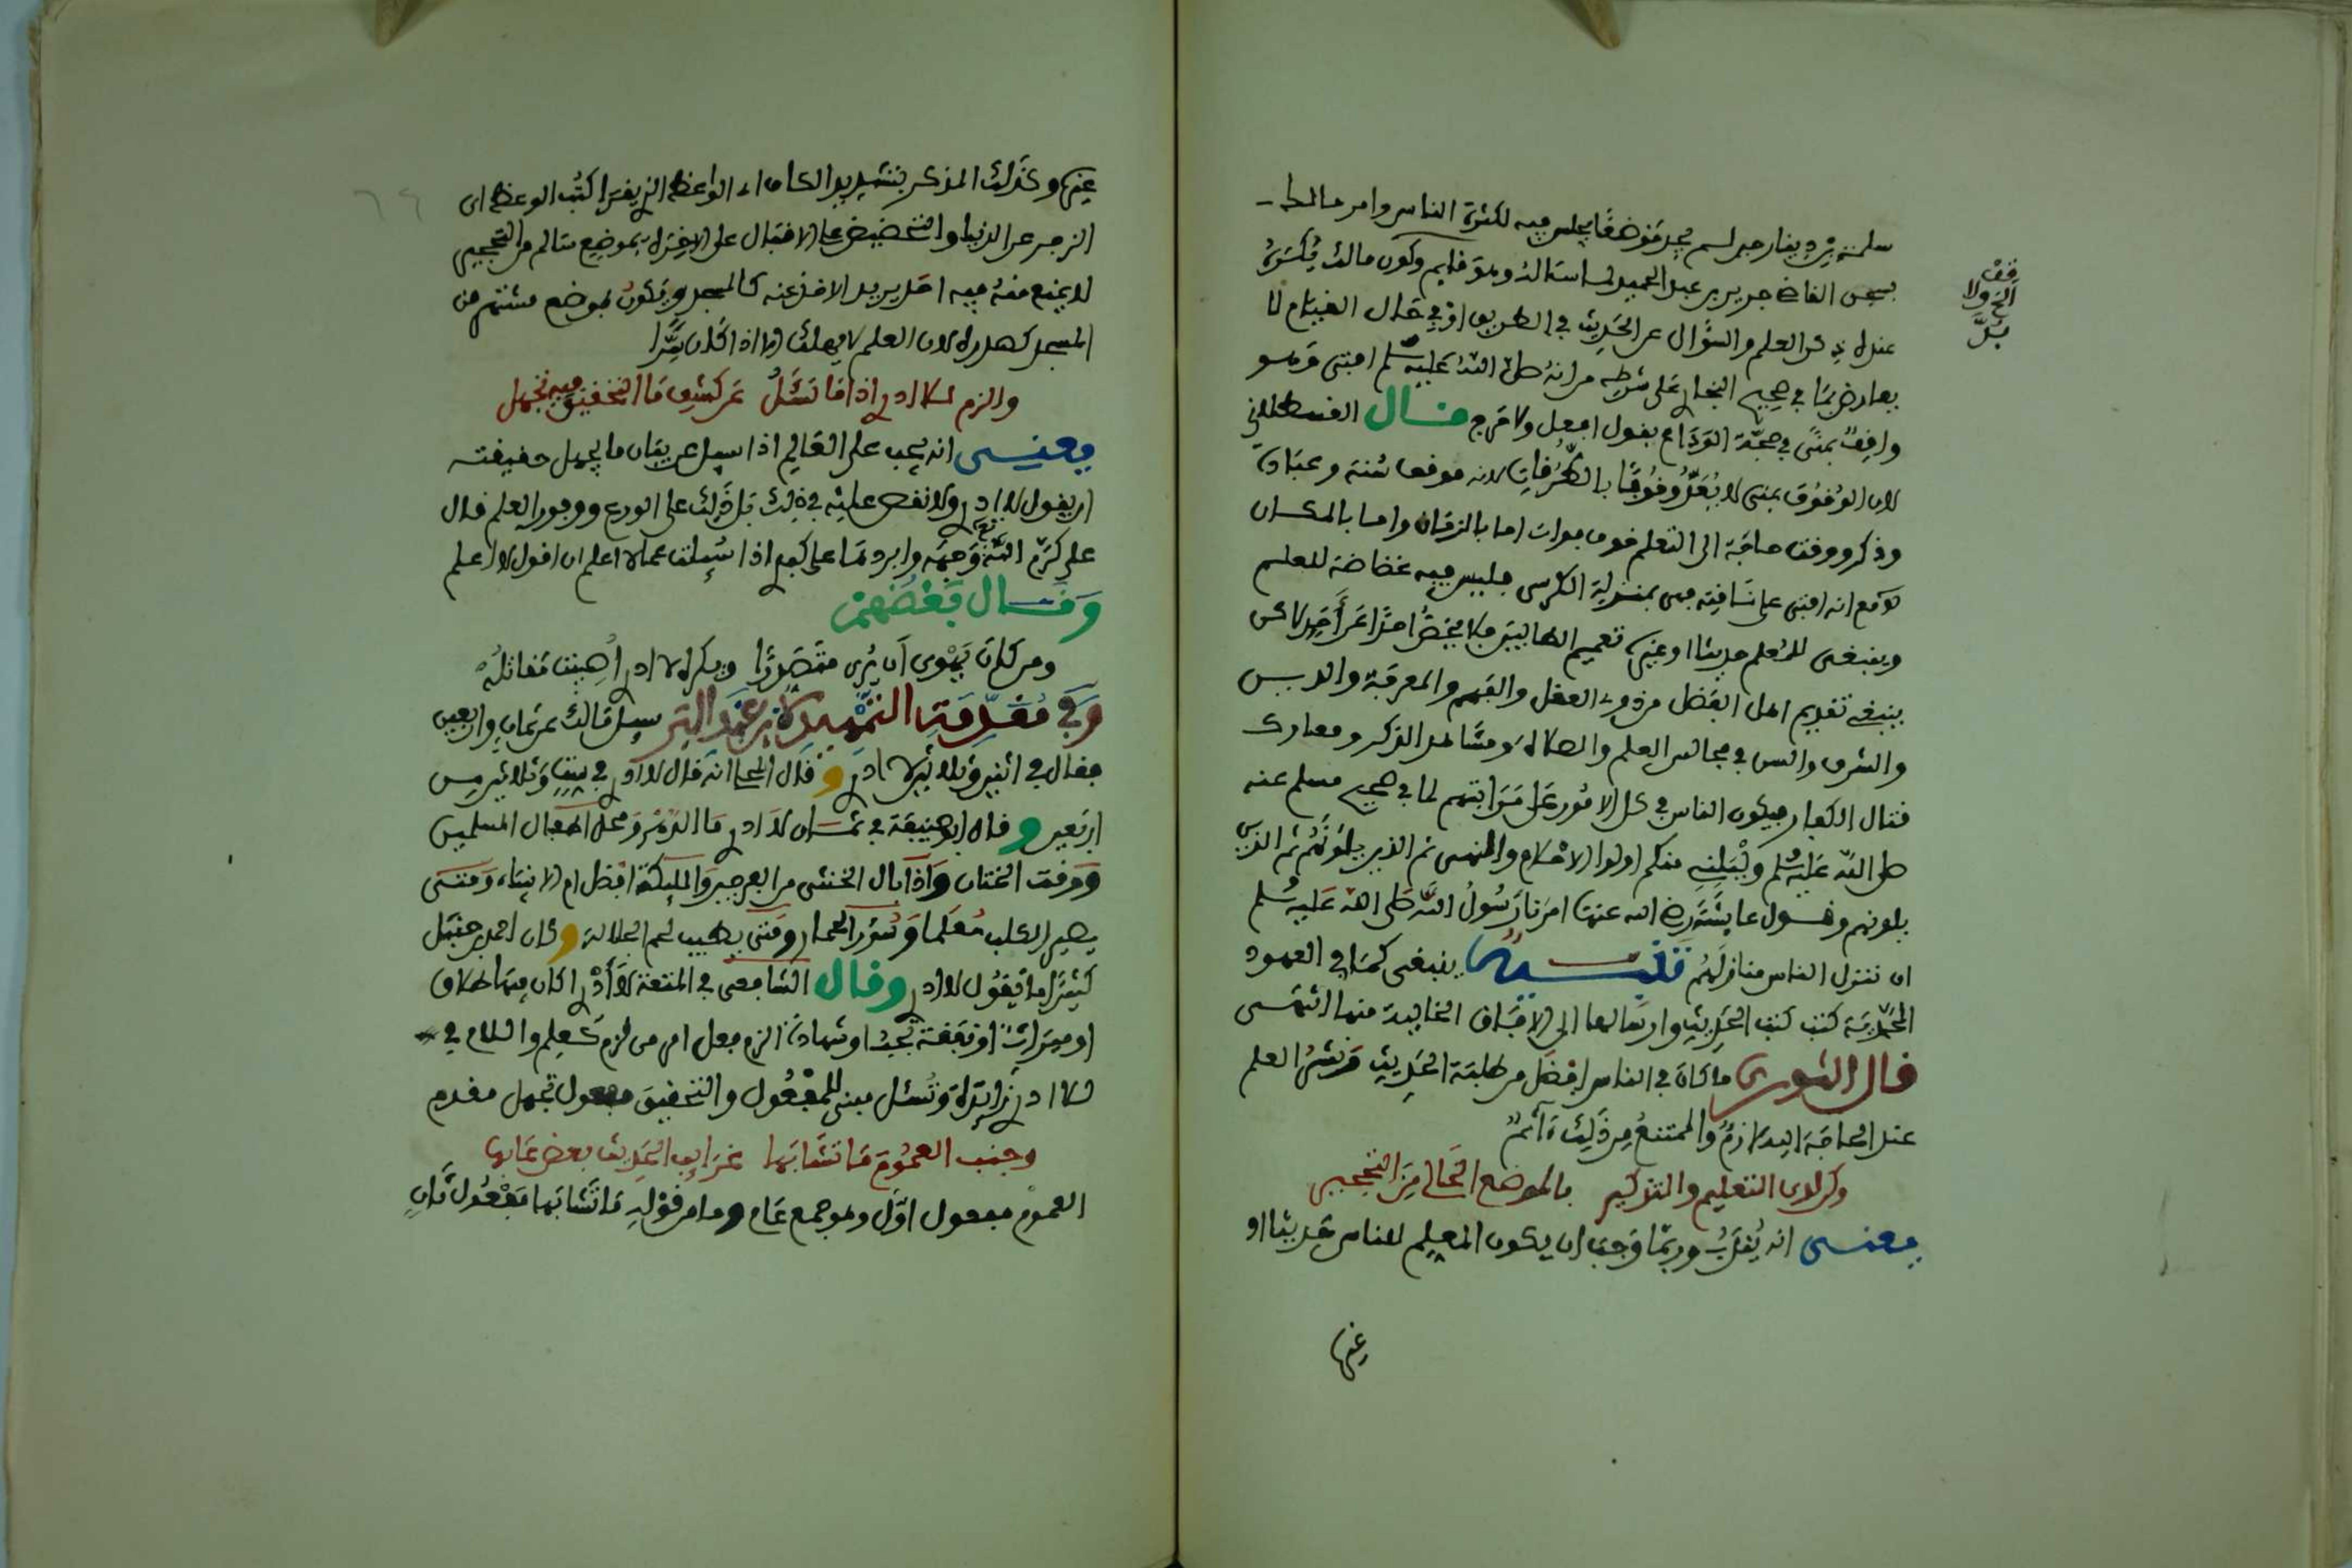 سلمة بن دينار حين لم يجد موضعا يجلس فيه لكثرة الناس وامر مالك
بحبس القاضي جرير بن عبد الحميد لما استاله وهو قايم وكون مالك يكره
عنده ذكر العلم والسؤال عن الحديث في الطريق او في حال القيام لا
يعارض بما في صحيح البخاري على شرطه من انه صلى الله عليه وسلم افتى وهو
واقف بمنى في حجة الوداع بقول افعل ولا حرج قال القسطلاني
لان الوقوف بمنى لا يعد وقوفا بالطرقات لانه موقف سنة وعبادة
وذكر ووقت حاجة الى التعلم خوف فوات اما بالزمان واما بالمكان
ومع انه افتى على ناقته فهي بمنزلة الكرسي فليس فيه غضاضة للعلم
وينبغي للمعلم حديثا او غيره تعميم الطالبين فلا يخص احدا عن احد لاكن
ينبغي تقديم اهل الفضل من ذوي العقل والفهم والمعرفة والدين
والشرف والسن في مجالس العلم والصلاة ومشاهد الذكر ومعارك
قتال الكفار فيكون الناس في كل الامور على مراتبهم لما في صحيح مسلم عنه
صلى الله عليه وسلم وليلني منكم اولوا الاحلام والنهى ثم الذين يلونهم ثم الذين
يلونهم وقول عايشة رضي الله عنها امرنا رسول الله صلى الله عليه وسلم
ان ننزل الناس منازلهم تنبيه ينبغي كما في العهود
المحمدية كتب كتب الحديث وارسالها الى الافاق الخالية منها انتهى
قال الثوري ما كان في الناس افضل من طلبة الحديث ونشر العلم
عند الحاجة اليه لازم والممتنع من ذلك ءاثم
وكن لدى التعليم والتذكير بالموضع الخالي من التحجير
يعنى انه يقرب وربما وجب ان يكون المعلم للناس حديثا او
غيرها
قف
الخ ولا
بد
غيرها وكذلك المذكر بتشديد الكاف اي الواعظ الذي يقرا كتب الوعظ اي
الزجر عن الدنيا والتحضيض على الاقبال على الاخرة بموضع سالم من التحجير
لا يمنع منه فيه احد يريد الاخذ عنه كالمسجد ويكون بموضع مشتهر من
المسجد كصدره لان العلم لا يهلك الا اذا كان سرا
والزم للا ادري اذا ما تسئل عن كشف ما التحقيق فيه تجهل
يعنى انه يجب على العالم اذا سيل عن بيان ما يجهل حقيقته
ان يقول لا ادري ولا نقص عليه في ذلك بل ذلك على الورع ووجور العلم قال
علي كرم الله وجهه وابردها على كبدي اذا سئلت عما لا اعلم ان اقول لا اعلم
وقال بعضهم
ومن كان يهوى ان يرى متصدرا ويكره لا ادري اصيبت مقاتله
وفي مقدمة التمهيد لابن عبد البر سيل مالك عن ثمان واربعين
فقال في اثنين وثلاثين لا ادري وقال انه قال لا ادري في ست وثلاثين من
اربعين وقال ابو حنيفة في ثمان لا ادري ما الدهر ومحل اطفال المسلمين
ووقت الختان واذا بال الخنثى من الفرجين والمليكة افضل ام الانبياء ومتى
يصير الكلب معلما وسؤر الحمار ومتى يطيب لحم الجلالة وكان احمد بن حنبل
كثيرا ما يقول لا ادري وقال الشافعي في المتعة لا ادري اكان فيها طلاق
او ميراث او نفقة تجب او شهادة الزم فعل امر من لزم كعلم واللام في
للا ادري زايدة وتسئل مبني للمفعول والتحقيق مفعول تجهل مقدم
وجنب العموم ما تشابها غرايب الحديث بعض عابها
العموم مفعول اول وهو جمع عام وما من قوله ما تشابها مفعول ثان